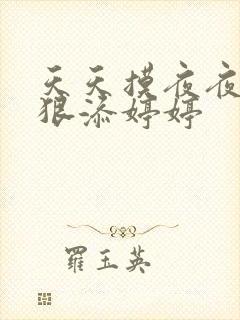 天天摸夜夜
狠添婷婷
羅玉英